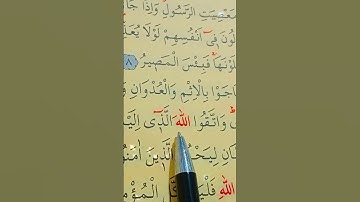 مَعْصِيَتِ الرَّسُولِ وَاِذَا جَٓا
لُونَ ف۪ٓي اَنْفُسِهِمْ لَوْلَا يُعَذِّ
لَوْنَهَاۚ فَبِئْسَ الْمَص۪يرُ ﴿٨
نَاجَوْا بِالْاِثْمِ وَالْعُدْوَانِ وَ
وَاتَّقُوا اللّٰهَ الَّذ۪ٓي اِلَيْ
انِ لِيَحْزُ الَّذ۪ينَ اٰمَنُو
اللّٰهِ فَلْيَ كَّلِ الْمُؤْمِ